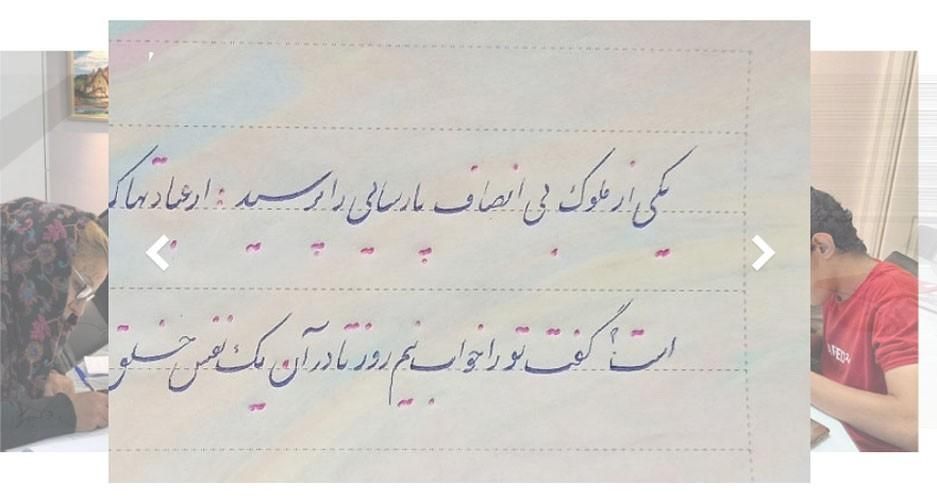 یکی از ملوک بی انصاف پارسایی را پرسید : از عبادتها ک
است؟ گفت تو را خواب نیم روز تا در آن یک نفس خلق